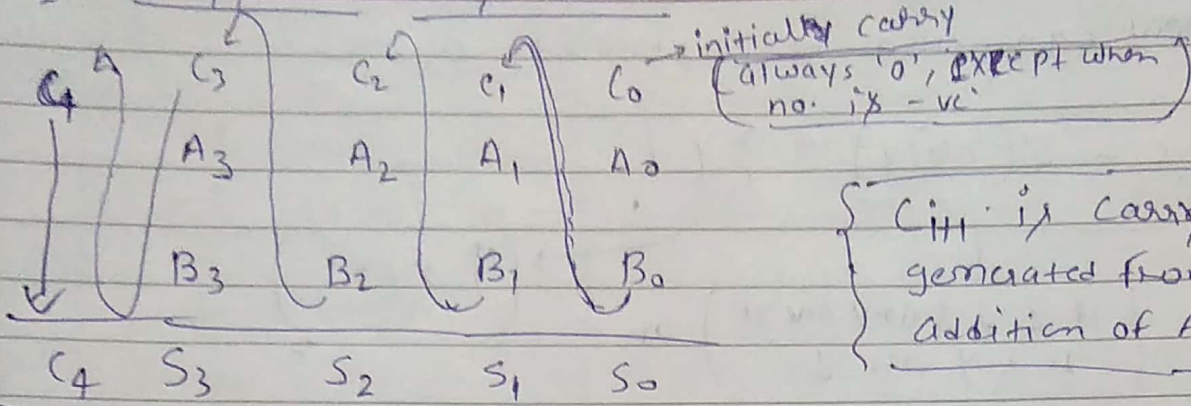 C4 C3 C2 C1 C0 → initially carry
(always '0', except when
no. is -ve)
A3 A2 A1 A0
B3 B2 B1 B0
C4 S3 S2 S1 S0
{ Ci+1 is
generated
addition of